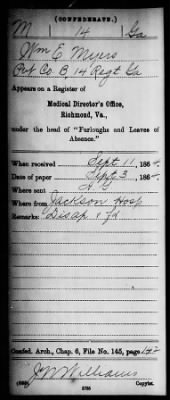 (CONFEDERATE.)
M 14 Ga
Wm E Myers
Pvt Co. B, 14 Regt Ga
Appears on a Register of
Medical Director's Office,
Richmond, Va.,
under the head of "Furloughs and Leaves of
Absence."
When received Sept 11, 1864.
Date of paper Sept 3, 1864.
Where sent
Where from Jackson Hosp
Remarks: Disap & fd
Confed. Arch., Chap. 6, File No. 145, page 142
J W Williams
Copyist.